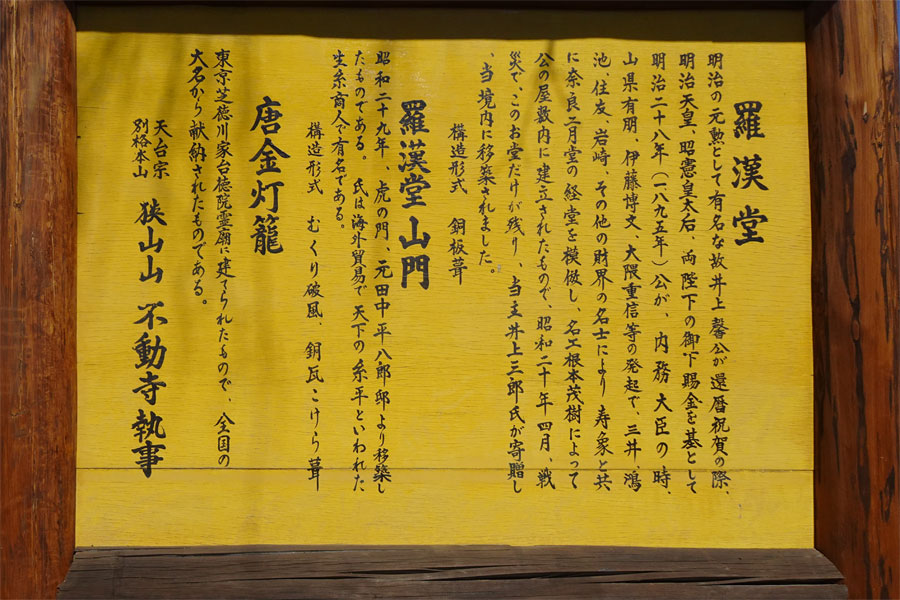 羅漢堂
明治の元勲として有名な故井上馨公が還暦祝賀の際、
明治天皇、昭憲皇太后、両陛下の御下賜金を基として
明治二十八年(一八九五年)公が、内務大臣の時、
山県有朋、伊藤博文、大隈重信等の発起で、三井、鴻
池、住友、岩崎、その他の財界の名士により寿象と共
に奈良二月堂の経堂を模倣し、名工根本茂樹によって
公の屋敷内に建立されたもので、昭和二十年四月、戦
災で、このお堂だけが残り、当主井上三郎氏が寄贈し
、当境内に移築されました。
構造形式 銅板葺
羅漢堂山門
昭和二十九年、虎の門、元田中平八郎邸より移築し
たものである。氏は海外貿易で天下の糸平といわれた
生糸商人で有名である。
構造形式 むくり破風、銅瓦こけら葺
唐金灯籠
東京芝徳川家台徳院霊廟に建てられたもので、全国の
大名から献納されたものである。
天台宗
別格本山 狭山山 不動寺執事